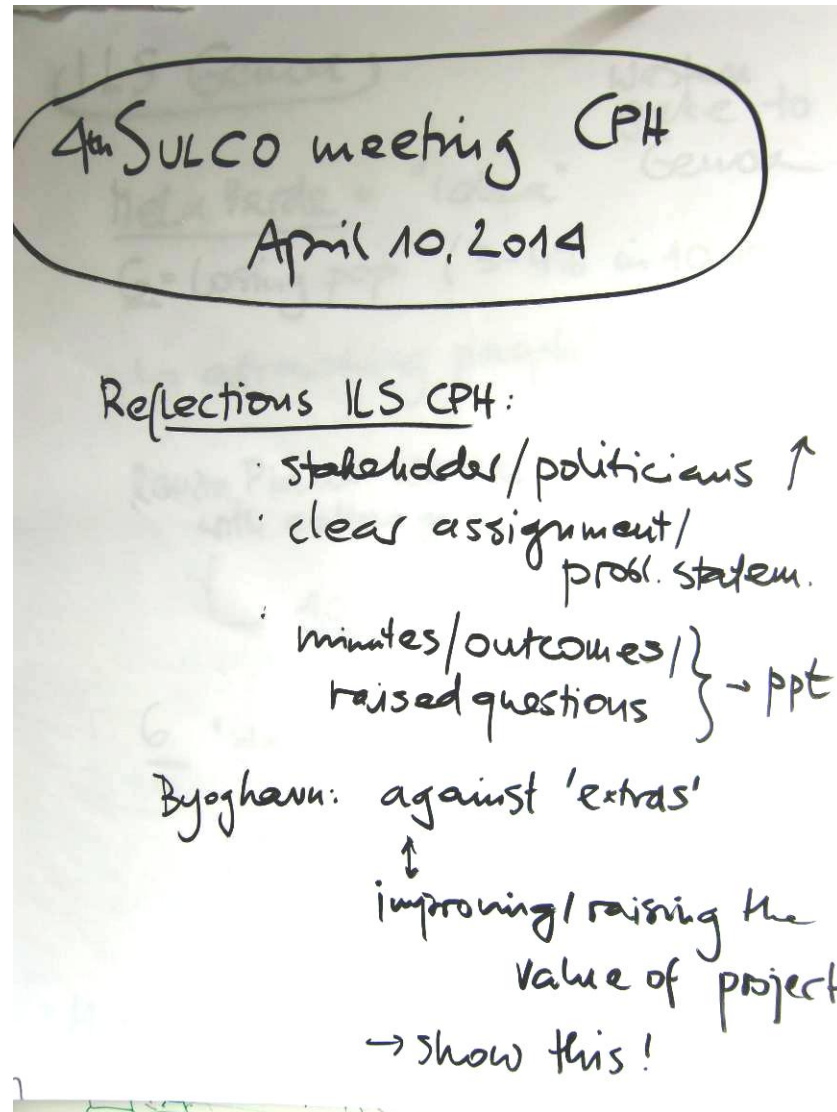 4th SULCO meeting CPH
April 10, 2014
Reflections ILS CPH:
· stakeholder/politicians ↑
· clear assignment/
probl. statem.
· minutes/outcomes/
raised questions } → ppt
Byoghavn: against 'extras'
↕
improving/raising the
value of project
→ show this!